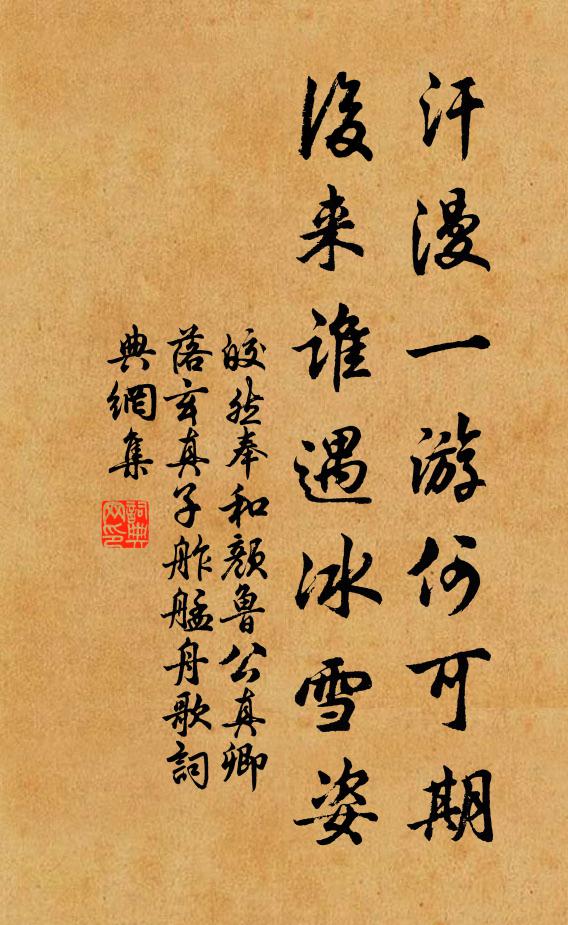 汗漫一游何可期
後来谁遇冰雪姿
皎然奉和颜鲁公真卿
落玄真子舴艋舟歌詞
典網集
詞典网印